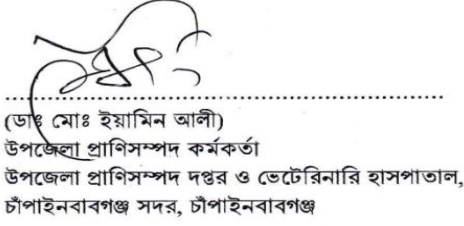 (ডাঃ মোঃ ইয়ামিন আলী)
উপজেলা প্রাণিসম্পদ কর্মকর্তা
উপজেলা প্রাণিসম্পদ দপ্তর ও ভেটেরিনারি হাসপাতাল,
চাঁপাইনবাবগঞ্জ সদর, চাঁপাইনবাবগঞ্জ